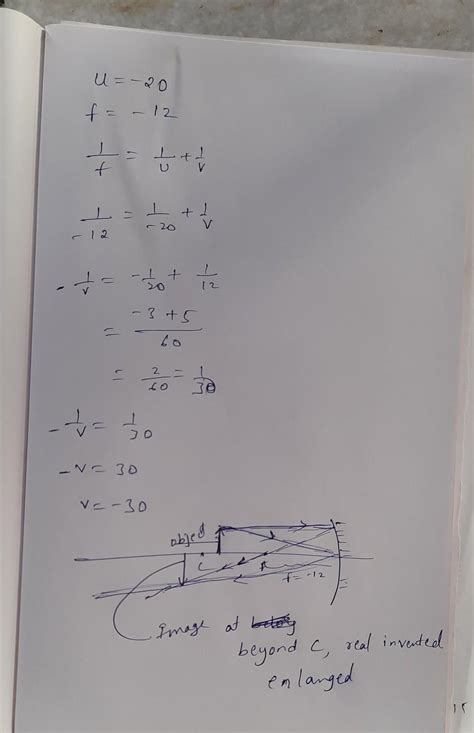 u = -20
f = -12
1/f = 1/u + 1/v
1/-12 = 1/-20 + 1/v
- 1/v = -1/20 + 1/12
= -3 + 5/60
= 2/60 = 1/30
- 1/v = 1/30
-v = 30
v = -30
object
C
f = -12
Image at
beyond C, real inverted
enlanged